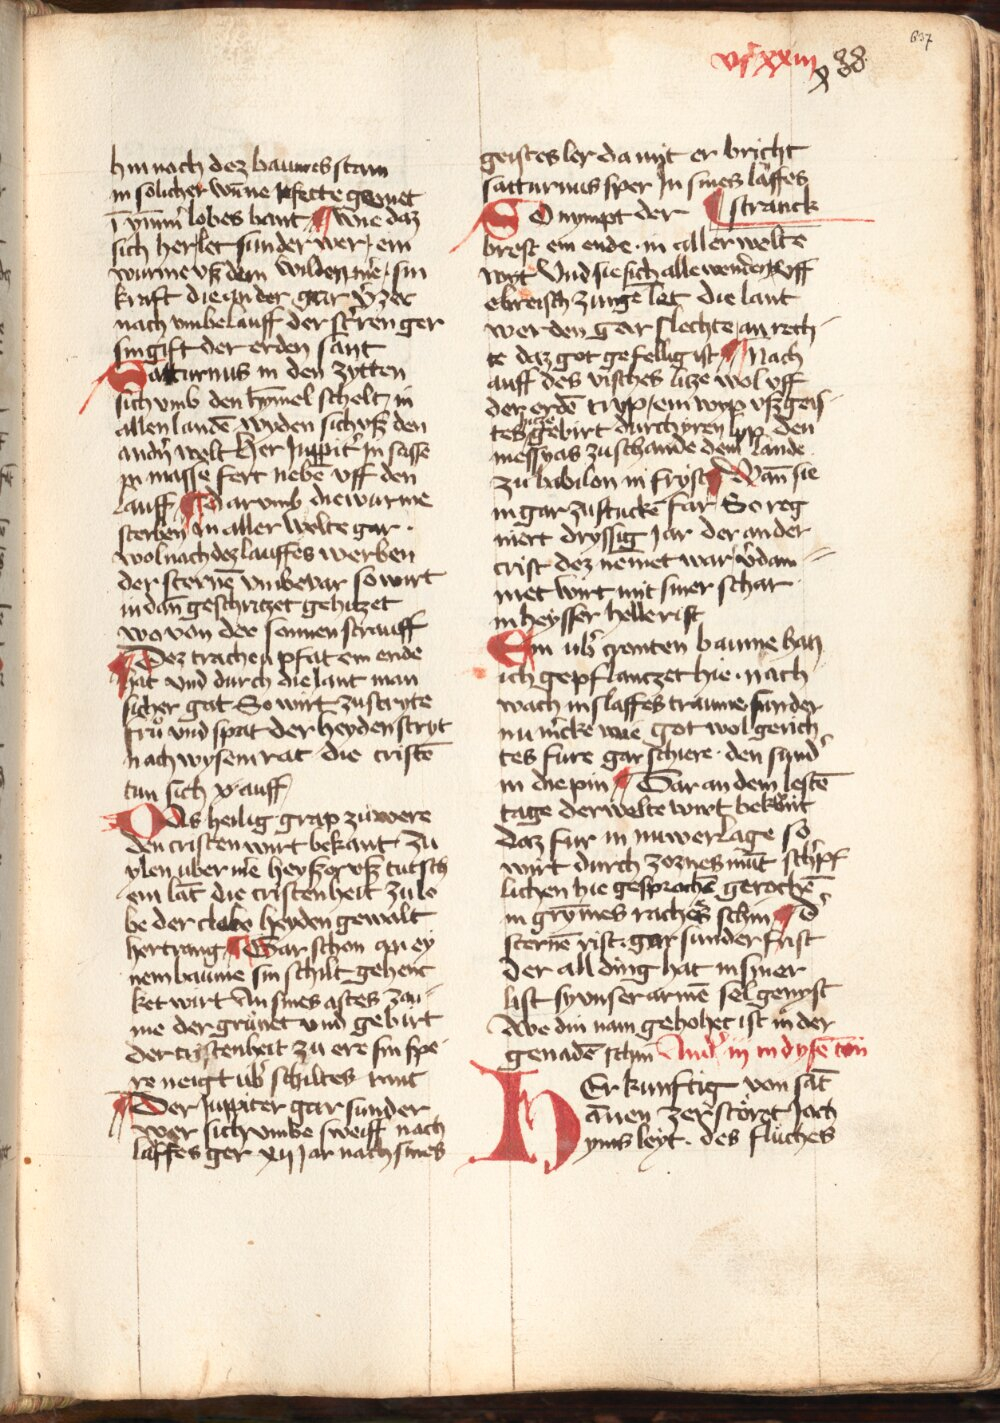 637
vi xxiii
hin nach dez baumes stam
in sölicher wūne
lobes hant Wie daz
sich her let sunder wer ein
wurme vß dem wilden mē sin
kraft die
nach vmbelauff der strenger
sin gift der erden sant
Satturnus in den zytten
sich vmb den hȳmel schelt in
allen landē wyden sich vß den
andn welt Her Juppit' in sasse
in masse fert nebē vff den
lauff Darvmb die wurme
sterben in aller welte gar
wol nach dez lauffes werben
der sternē vmbevar so wirt
in dān geschritzet gehitzet
wo von der sonnen strauff
Dez trachen pfat ein ende
hat vnd durch die lant man
sicher gat So wirt zu stryte
frů vnd spat der heyden stryt
nach wysem rat die cristē
tun sich v̇ auff
Das heilig grap zů were
den cristen wirt bekant zu
ylen uber mē heyßer vß tutsch
em lāt die cristenheit zu lo
be der heyden gewalt
hertrang Gar schon an ey
nem baume sin schilt gehenc
ket wirt An sines astes zau
me der grůnet vnd gebirt
der cristenheit zu ere sin spe
re neigt ub' schiltes rant
Der Juppiter gar sunder
wer sich vmbe sweiff nach
lauffes ger xij Jar nach sines
geistes ler da mit er bricht
satturnus sper in sines lauffes
So nympt der stranck
brest ein ende in aller welte
wyt Vnd sie sich alle wenden vff
ebreisch zunge Let die lant
werden gar slechte an rech
te daz got gefellig ist Nach
auff des visches litze wol vff
der erdē tryp ein wyp vß geis
tes gebirt durch yren lyp den
messyas zu schande dem lande
zu babilon in fryst Wān sie
in gar zu stucken far So reg
niert dryssig Jar der ander
crist dez nēmet war v'dam
met wirt mit siner schar
in heysser helle rist
Ein ub' gronten baume han
ich gepflanczet hie nach
wach in slaffes traume sunder
nu mercke wie got wol gerich
tes fure gar schiere den sund'
in die pin Dar an dem lestē
tage der welte wirt bekant
daz fur in nuwer lage so
wirt durch zornes můt scharpf
lichen hie gesprochē gerochē
in grȳmes raches schin D'
sternē rist gar sunder frist
der all ding hat in siner
list sy vnser armē sel genyst
Awe din nam gehohet ist in der
genadē schin And' in in dysē ton
HEr kunftig von sāt
annen zerstöret Joch
yms leyt des fluches